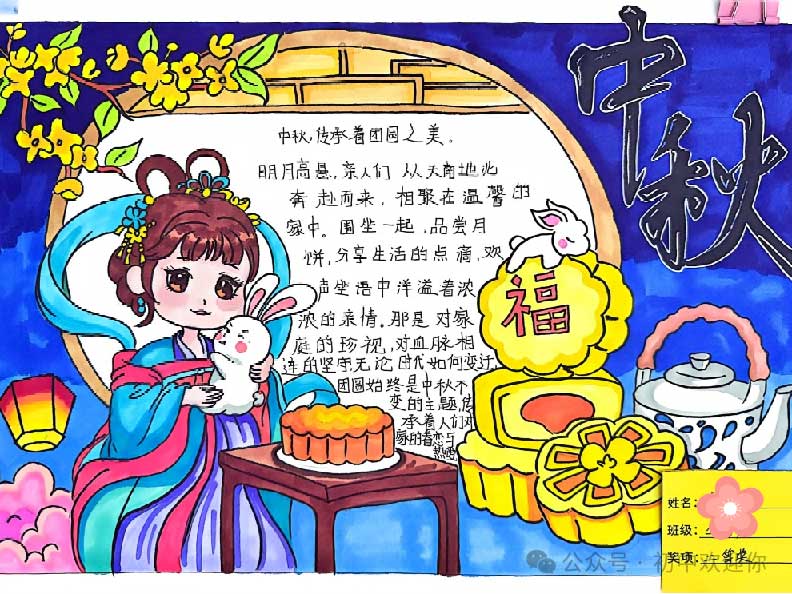 中秋
中秋,传承着团圆之美。
明月高悬,亲人们从天南地北
奔赴而来,相聚在温馨的
家中。围坐一起,品尝月
饼,分享生活的点滴,欢
声笑语中洋溢着浓
浓的亲情。那是对家
庭的珍视,对血脉相
连的坚守无论时代如何变迁
团圆始终是中秋不
变的主题,传
承着人们对
家的眷恋与
热爱
福
姓名:
班级:
奖项:
公众号·初中欢迎你